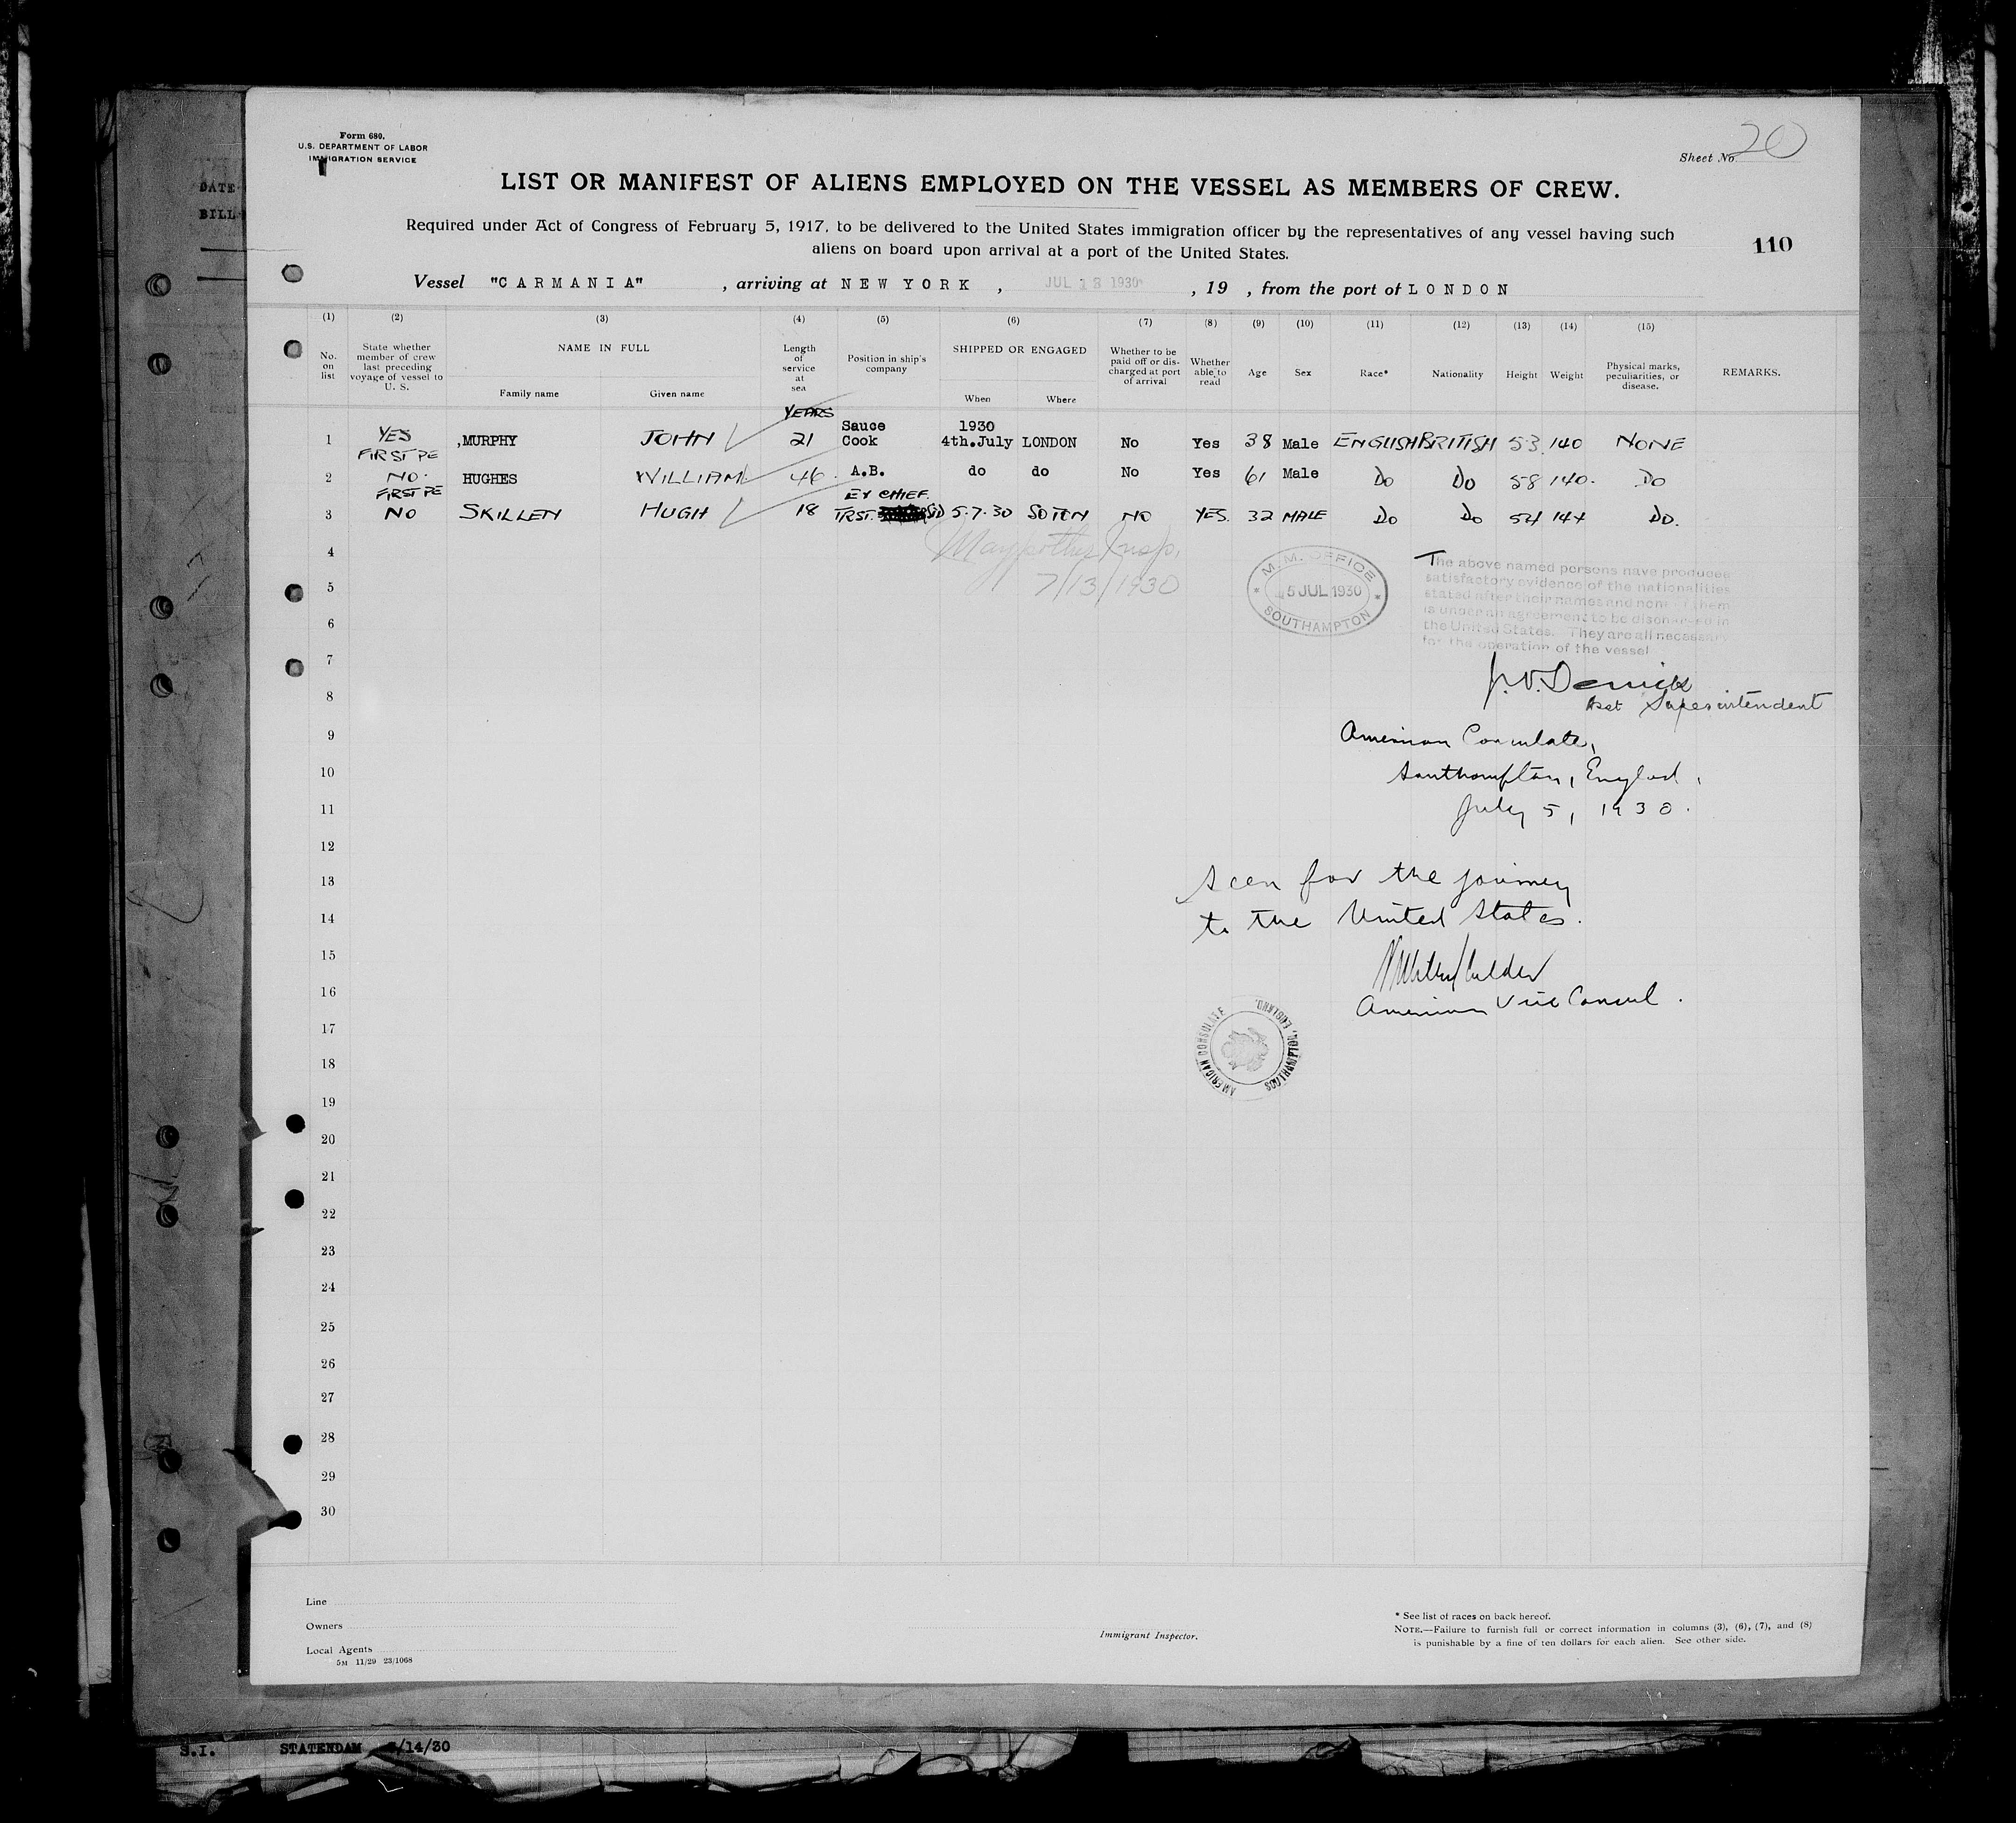 DATE
BILL
Form 680.
U.S. DEPARTMENT OF LABOR
IMMIGRATION SERVICE
Sheet No. 20
LIST OR MANIFEST OF ALIENS EMPLOYED ON THE VESSEL AS MEMBERS OF CREW.
Required under Act of Congress of February 5, 1917, to be delivered to the United States immigration officer by the representatives of any vessel having such
aliens on board upon arrival at a port of the United States.
110
Vessel "CARMANIA" , arriving at NEW YORK , JUL 13 1930 , 19 , from the port of LONDON
(1) (2) (3) (4) (5) (6) (7) (8) (9) (10) (11) (12) (13) (14) (15)
No. on list
State whether member of crew last preceding voyage of vessel to U. S.
NAME IN FULL
Family name Given name
Length of service at sea
Position in ship's company
SHIPPED OR ENGAGED
When Where
Whether to be paid off or discharged at port of arrival
Whether able to read
Age Sex Race* Nationality Height Weight
Physical marks, peculiarities, or disease.
REMARKS.
YEARS
1 YES MURPHY JOHN 21 Sauce Cook 1930 4th.July LONDON No Yes 38 Male ENGLISH BRITISH 5.3 140 NONE
FIRST PE
2 NO. HUGHES WILLIAM 46 A.B. do do No Yes 61 Male Do Do 5 8 140. Do
FIRST PE EX CHIEF.
3 NO SKILLEN HUGH 18 TRST. 5.7.30 SOTON NO YES. 32 MALE Do Do 5 4 144 Do.
Insp.
7/13/1930
M. M. OFFICE
5 JUL 1930
SOUTHAMPTON
The above named persons have produced
satisfactory evidence of the nationalities
stated after their names and none of them
is under an agreement to be discharged in
the United States. They are all necessary
for the operation of the vessel
Asst Superintendent
American Consulate,
Southampton, England.
July 5, 1930.
Seen for the journey
to the United States.
American Vice Consul.
AMERICAN CONSULATE
SOUTHAMPTON, ENGLAND.
4
5
6
7
8
9
10
11
12
13
14
15
16
17
18
19
20
21
22
23
24
25
26
27
28
29
30
Line
Owners
Local Agents
5M 11/29 23/1068
Immigrant Inspector.
* See list of races on back hereof.
NOTE.—Failure to furnish full or correct information in columns (3), (6), (7), and (8)
is punishable by a fine of ten dollars for each alien. See other side.
S.I. STATENDAM /14/30